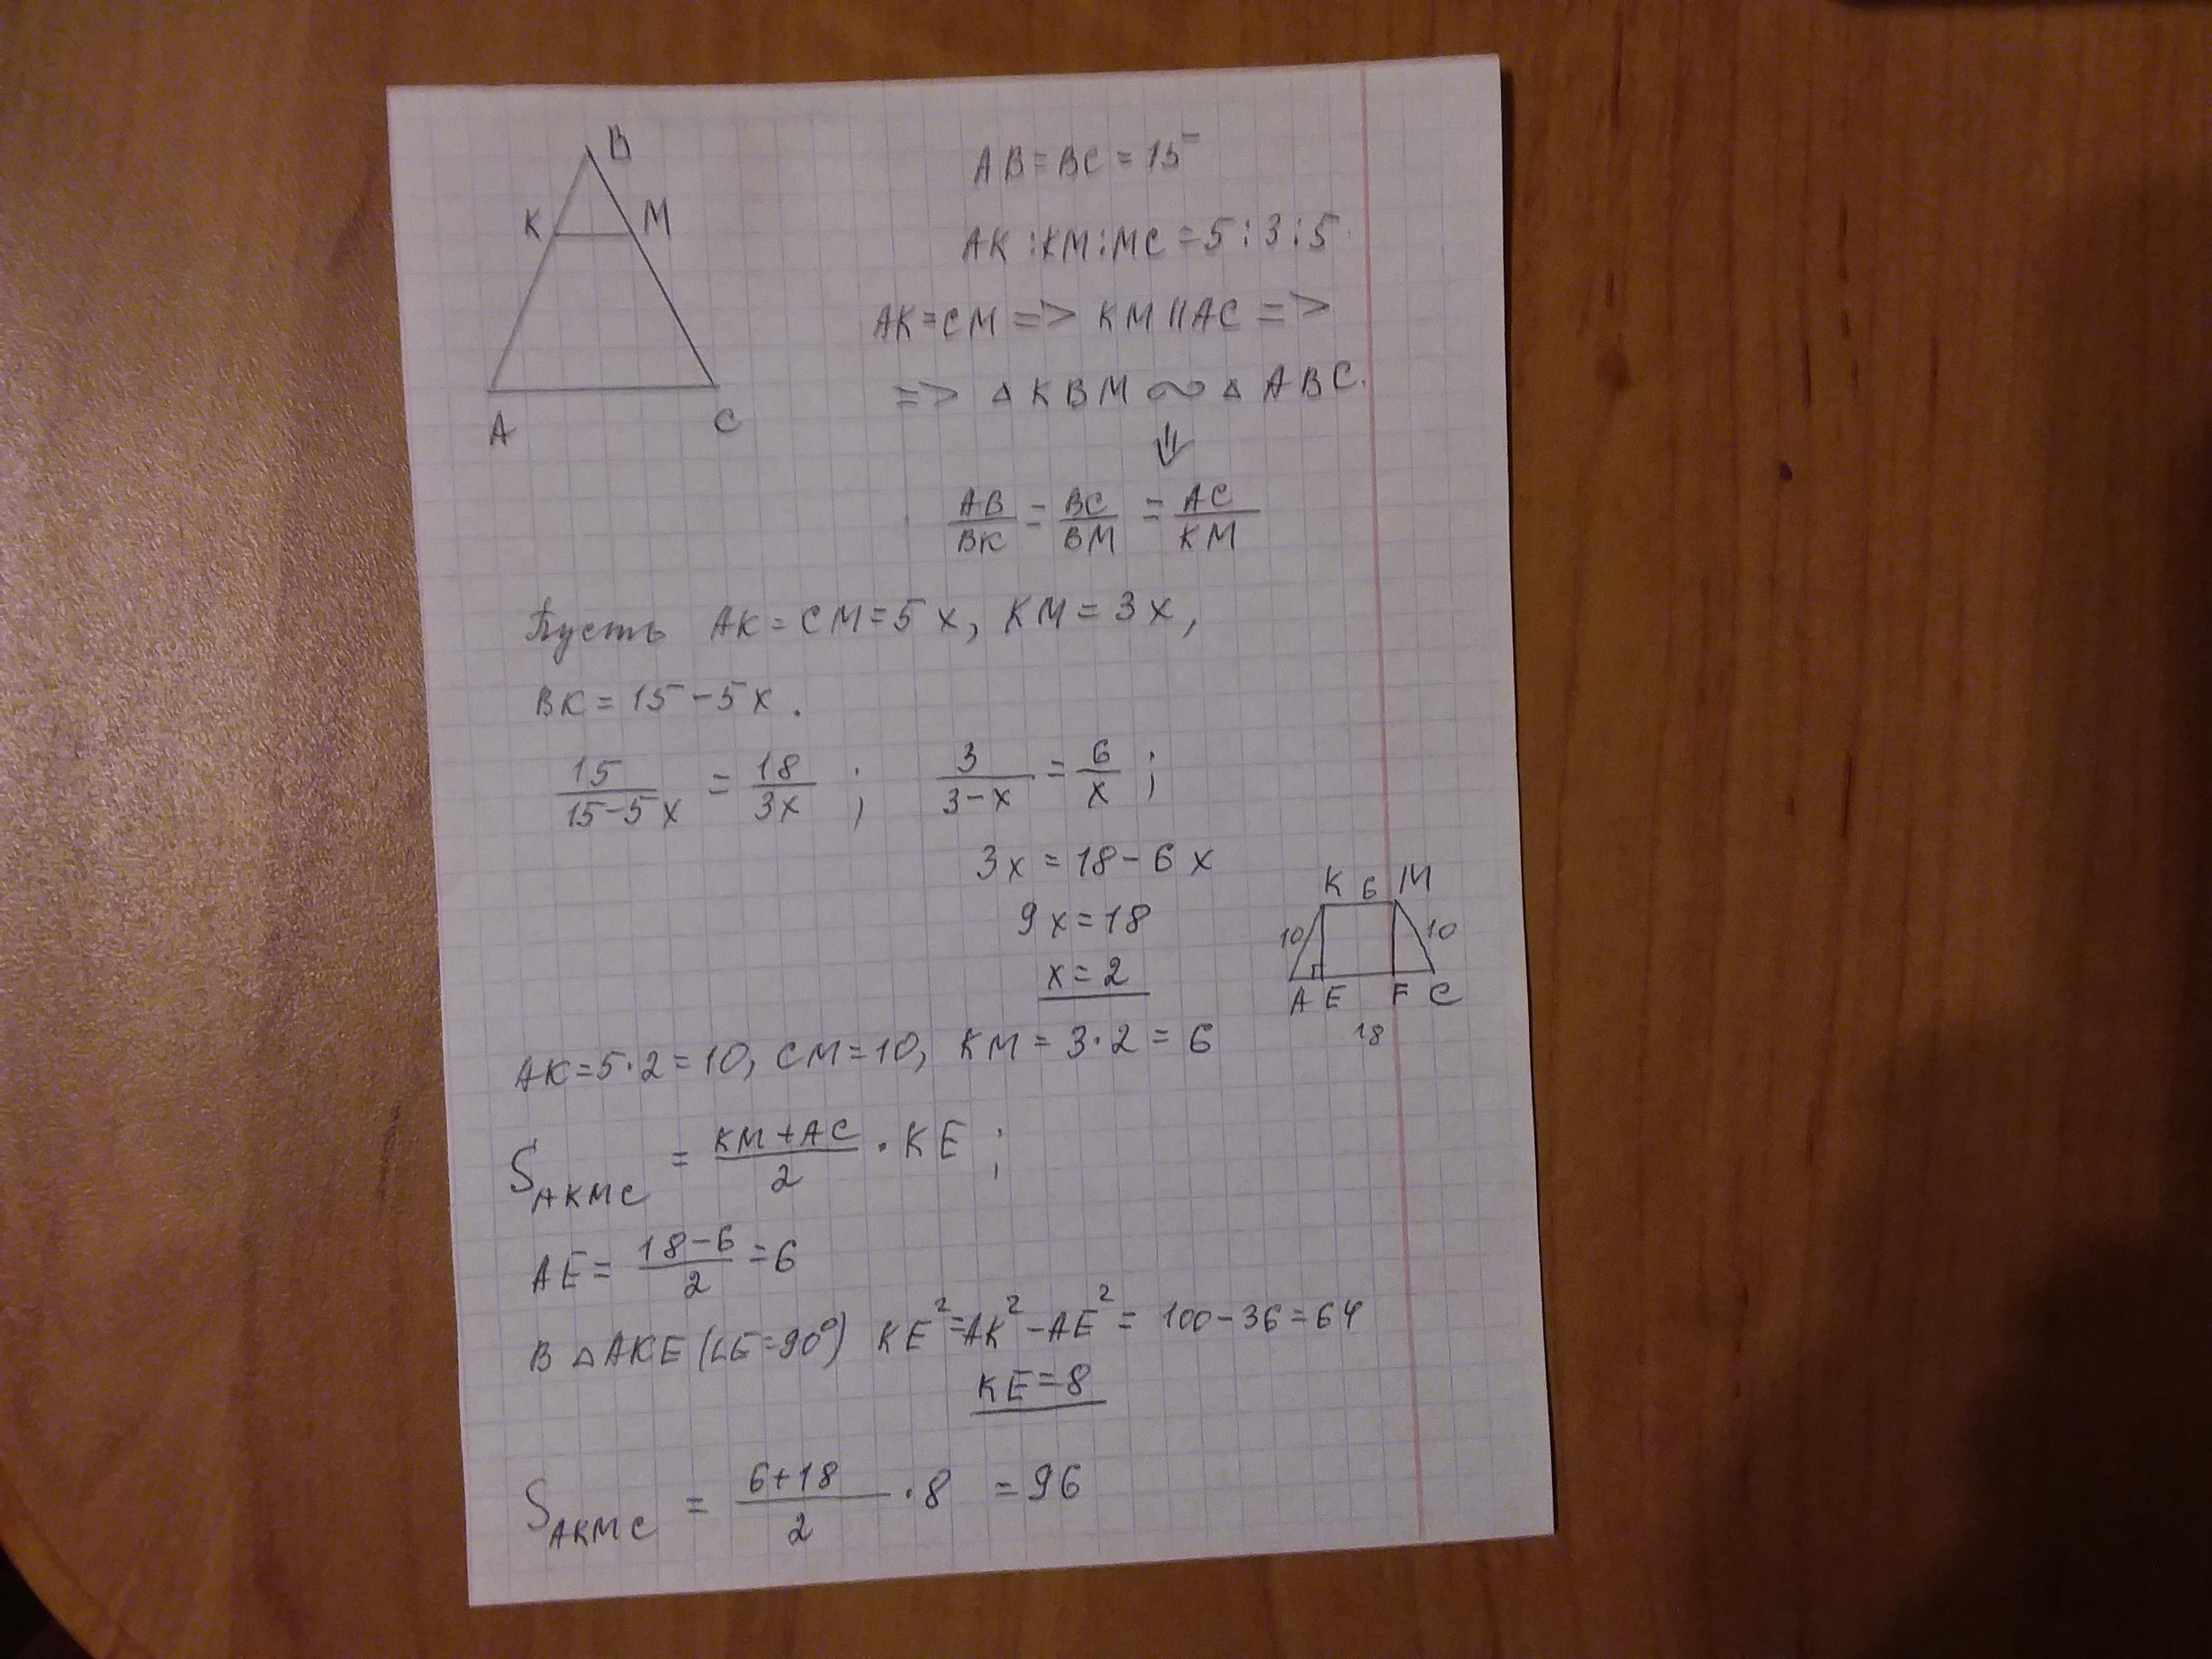 B
K M
A C
AB = BC = 15
AK : KM : MC = 5 : 3 : 5
AK = CM => KM || AC =>
=> △ KBM ∾ △ ABC.
⇓
AB/BK = BC/BM = AC/KM
Пусть AK = CM = 5x, KM = 3x,
BK = 15 - 5x.
15/(15-5x) = 18/3x ; 3/(3-x) = 6/x ;
3x = 18 - 6x
9x = 18
x = 2
K 6 M
10 10
A E F C
18
AK = 5·2 = 10, CM = 10, KM = 3·2 = 6
S_AKMC = (KM + AC)/2 · KE ;
AE = (18 - 6)/2 = 6
В △ AKE (∠E = 90°) KE² = AK² - AE² = 100 - 36 = 64
KE = 8
S_AKMC = (6 + 18)/2 · 8 = 96